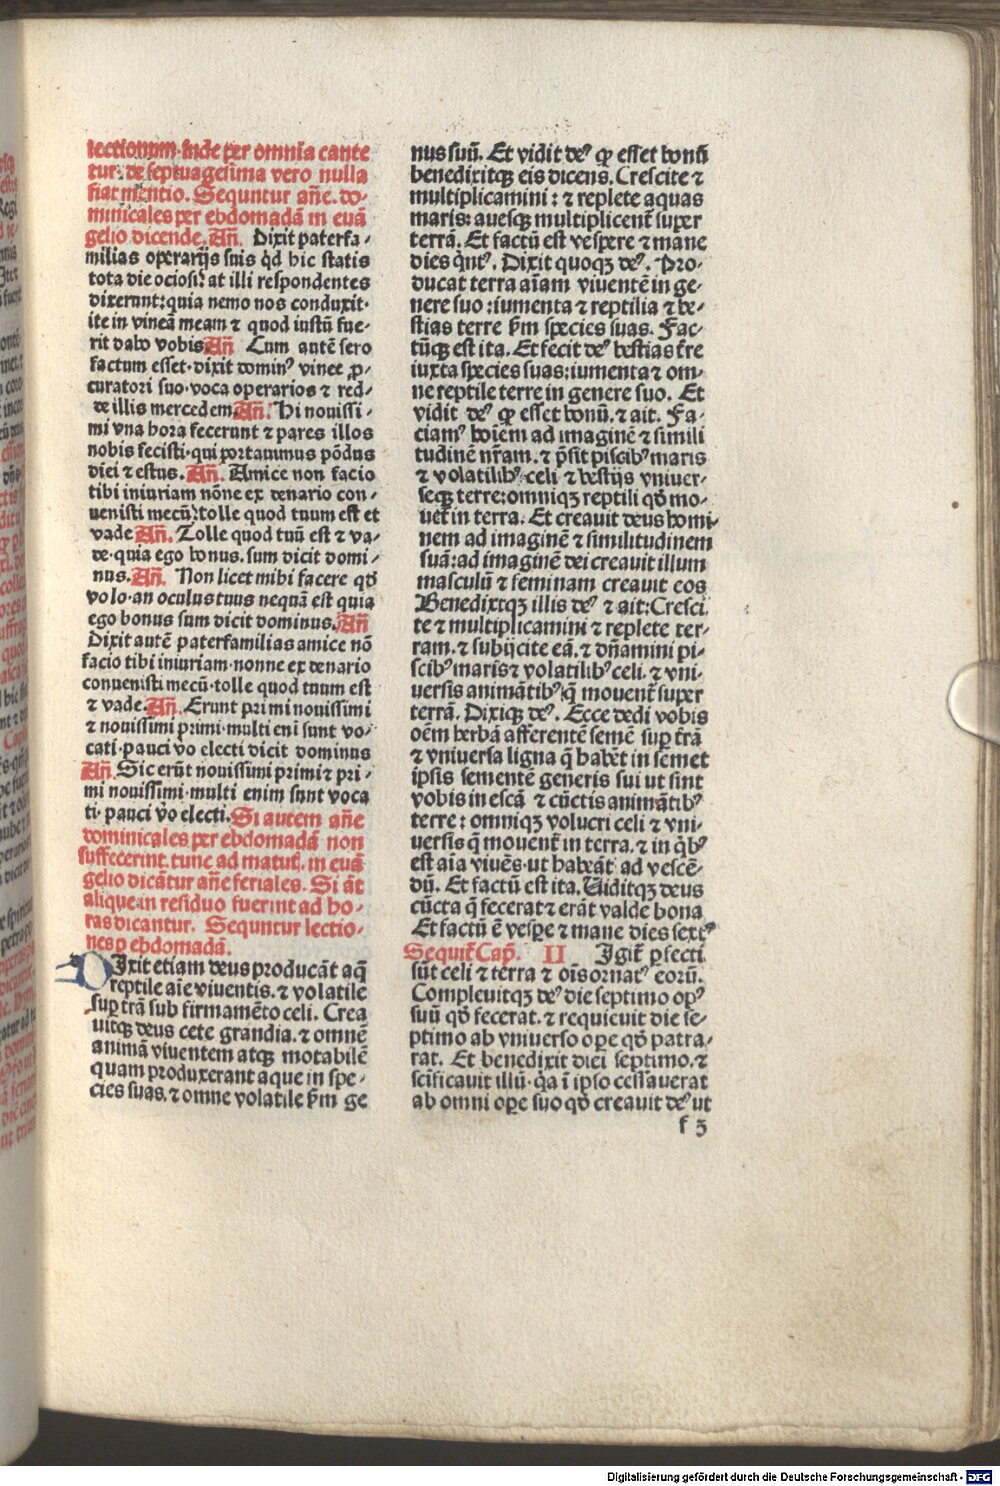 lectionum. inde per omnia cante
tur. de septuagesima vero nulla
fiat mentio. Sequuntur añe. do⸗
minicales per ebdomadā in euā
gelio dicende. Añ. Dixit paterfa⸗
milias operarijs suis qd hic statis
tota die ociosi? at illi respondentes
dixerunt: quia nemo nos conduxit.
ite in vineā meam ⁊ quod iustū fue⸗
rit dabo vobis Añ Cum autē sero
factum esset. dixit dominꝰ vinee ꝓ⸗
curatori suo. voca operarios ⁊ red⸗
de illis mercedem Añ. Hi nouissi⸗
mi vna hora fecerunt ⁊ pares illos
nobis fecisti. qui portauimus pōdus
diei ⁊ estus. Añ. Amice non facio
tibi iniuriam nōne ex denario con⸗
uenisti mecū? tolle quod tuum est et
vade Añ. Tolle quod tuū est ⁊ va⸗
de. quia ego bonus. sum dicit domi⸗
nus. Añ. Non licet mihi facere qđ
volo. an oculus tuus nequā est quia
ego bonus sum dicit dominus. Añ
Dixit autē paterfamilias amice nō
facio tibi iniuriam. nonne ex denario
conuenisti mecū. tolle quod tuum est
⁊ vade. Añ. Erunt primi nouissimi
⁊ nouissimi primi. multi eni sunt vo⸗
cati. pauci vo electi dicit dominus
Añ. Sic erūt nouissimi primi ⁊ pri⸗
mi nouissimi. multi enim sunt voca
ti. pauci vo electi. Si autem añe
dominicales per ebdomadā non
suffecerint. tunc ad matut. in euā
gelio dicātur añe feriales. Si āt
alique in residuo fuerint ad ho⸗
ras dicantur. Sequuntur lectio⸗
nes ꝑ ebdomadā.
DIxit etiam deus producāt aq̄
reptile aīe viventis. ⁊ volatile
suꝑ trā sub firmamēto celi. Crea
uitqꝫ deus cete grandia. ⁊ omnē
animā viuentem atqꝫ motabilē
quam produxerant aque in spe⸗
cies suas. ⁊ omne volatile ẜm ge
nus suū. Et vidit deꝰ ꝙ esset bonū
benedixitqꝫ eis dicens. Crescite ⁊
multiplicamini: ⁊ replete aquas
maris: auesqꝫ multiplicent̄ super
terrā. Et factū est vespere ⁊ mane
dies q̇ntꝰ. Dixit quoqꝫ deꝰ. Pro⸗
ducat terra aīam viuentē in ge⸗
nere suo: iumenta ⁊ reptilia ⁊ be⸗
stias terre ẜm species suas. Fac⸗
tūqꝫ est ita. Et fecit deꝰ bestias t̄re
iuxta species suas: iumenta ⁊ om⸗
ne reptile terre in genere suo. Et
vidit deꝰ ꝙ esset bonū. ⁊ ait. Fa⸗
ciamꝰ hoīem ad imaginē ⁊ simili
tudinē nr̄am. ⁊ p̄sit piscibꝰ maris
⁊ volatilibꝰ celi ⁊ bestijs vniuer⸗
seqꝫ terre: omniqꝫ reptili qđ mo⸗
uet̄ in terra. Et creauit deus homi⸗
nem ad imaginē ⁊ similitudinem
suā: ad imaginē dei creauit illum
masculū ⁊ feminam creauit eos
Benedixitqꝫ illis deꝰ ⁊ ait: Cresci
te ⁊ multiplicamini ⁊ replete ter⸗
ram. ⁊ subijcite eā. ⁊ dn̄amini pi⸗
scibꝰ maris ⁊ volatilibꝰ celi. ⁊ vni⸗
uersis animātibꝰ q̄ mouent̄ super
terrā. Dixitqꝫ deꝰ. Ecce dedi vobis
oēm herbā afferentē semē suꝑ t̄rā
⁊ vniuersa ligna q̄ habēt in semet
ipsis sementē generis sui ut sint
vobis in escā ⁊ cūctis animātibꝰ
terre: omniqꝫ volucri celi ⁊ vni⸗
uersis q̄ mouent̄ in terra. ⁊ in q̇bꝰ
est aīa viuēs. ut habeāt ad vescē⸗
dū. Et factū est ita. Uiditqꝫ deus
cūcta q̄ fecerat ⁊ erāt valde bona
Et factū ē vespe ⁊ mane dies sextꝰ
Sequit̄ Cap̄. II Igit̄ ꝑfecti
sūt celi ⁊ terra ⁊ oīs ornatꝰ eorū.
Compleuitqꝫ deꝰ die septimo opꝰ
suū qđ fecerat. ⁊ requieuit die se⸗
ptimo ab vniuerso ope qđ patra⸗
rat. Et benedixit diei septimo. ⁊
sc̄ificauit illū. q̇a ī ipso cessauerat
ab omni oꝑe suo qđ creauit deꝰ ut
f 3
Digitalisierung gefördert durch die Deutsche Forschungsgemeinschaft - DFG